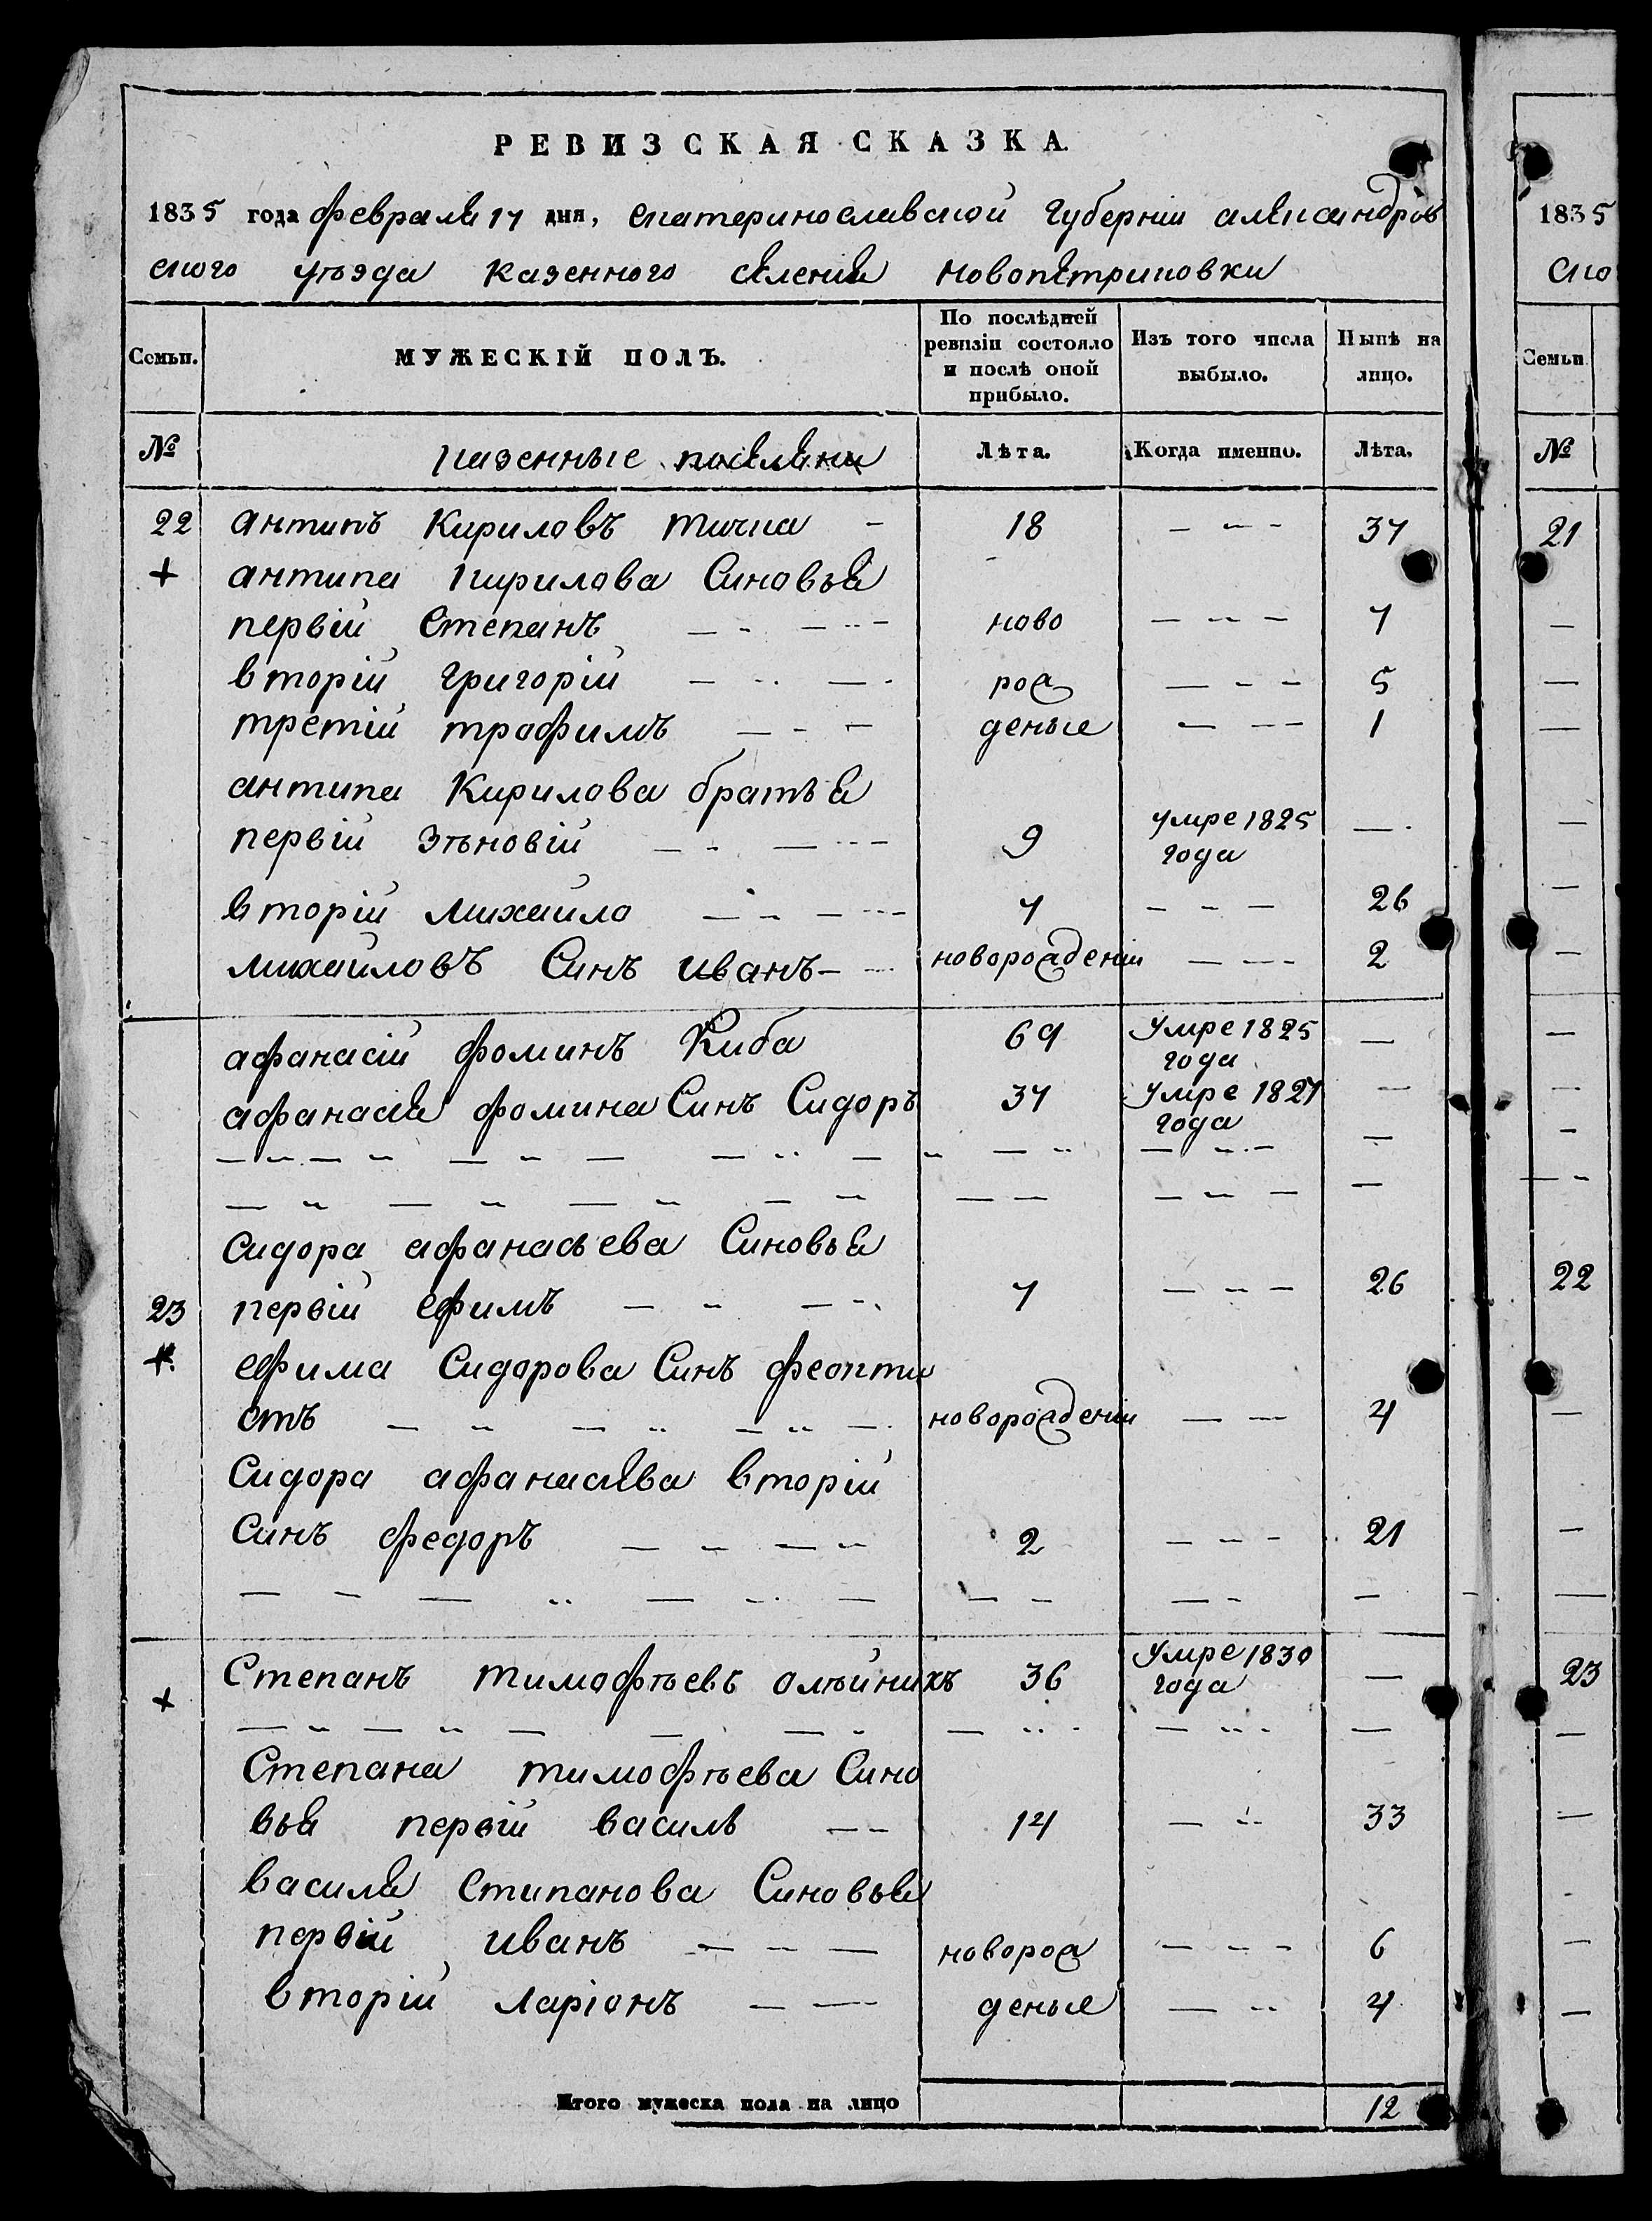 РЕВИЗСКАЯ СКАЗКА.
1835 года февраля 17 дня, екатеринославской губерніи александров
ского уѣзда казенного селения новопетриковки
Семьи.
МУЖЕСКІЙ ПОЛЪ.
По послѣдней ревизіи состояло и послѣ оной прибыло.
Изъ того числа выбыло.
Нынѣ на лицо.
№ казенные поселяни Лѣта. Когда именно. Лѣта.
22 антипъ кириловъ тичка - 18 — — — 37
+ антипа кирилова синовья
первій степанъ ново — — — 7
вторій григорій рож — — — 5
третій трофимъ деные — — — 1
антипа кирилова братья
первій зѣновій 9 умре 1825 года —
вторій михайло 7 — — — 26
михайловъ синъ иванъ новорожденій — — 2
афанасій фоминъ киба 69 умре 1825 года —
афанасія фомина синъ сидоръ 37 умре 1827 года —
сидора афанасьева синовья
23 первій ефимъ 7 — — — 26
+ ефима сидорова синъ феопти
стъ новорожденій — — 4
сидора афанасьева вторій
синъ федоръ 2 — — — 21
+ степанъ тимофѣевъ олѣйникъ 36 умре 1830 года —
степана тимофѣева сино
вья первій василь 14 — — 33
василя стипанова синовья
первій иванъ новорож — — — 6
вторій ларіонъ деные — — 4
Итого мужеска пола на лицо 12
1835
ско
Семьи
№
21
22
23